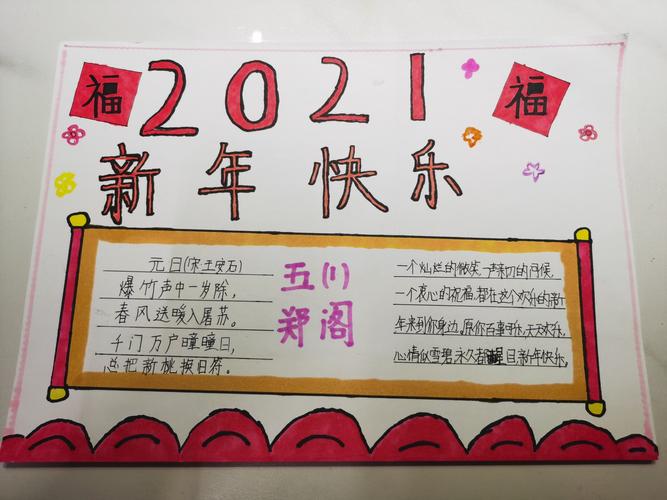 福
2021
福
新年快乐
元日(宋:王安石)
爆竹声中一岁除,
春风送暖入屠苏。
千门万户曈曈日,
总把新桃换旧符。
五(1)
郑阁
一个灿烂的微笑,一声亲切的问候,
一个衷心的祝福,都在这个欢乐的新
年来到你身边,愿你百事可乐,天天欢乐,
心情似雪碧,永久都目,新年快乐,